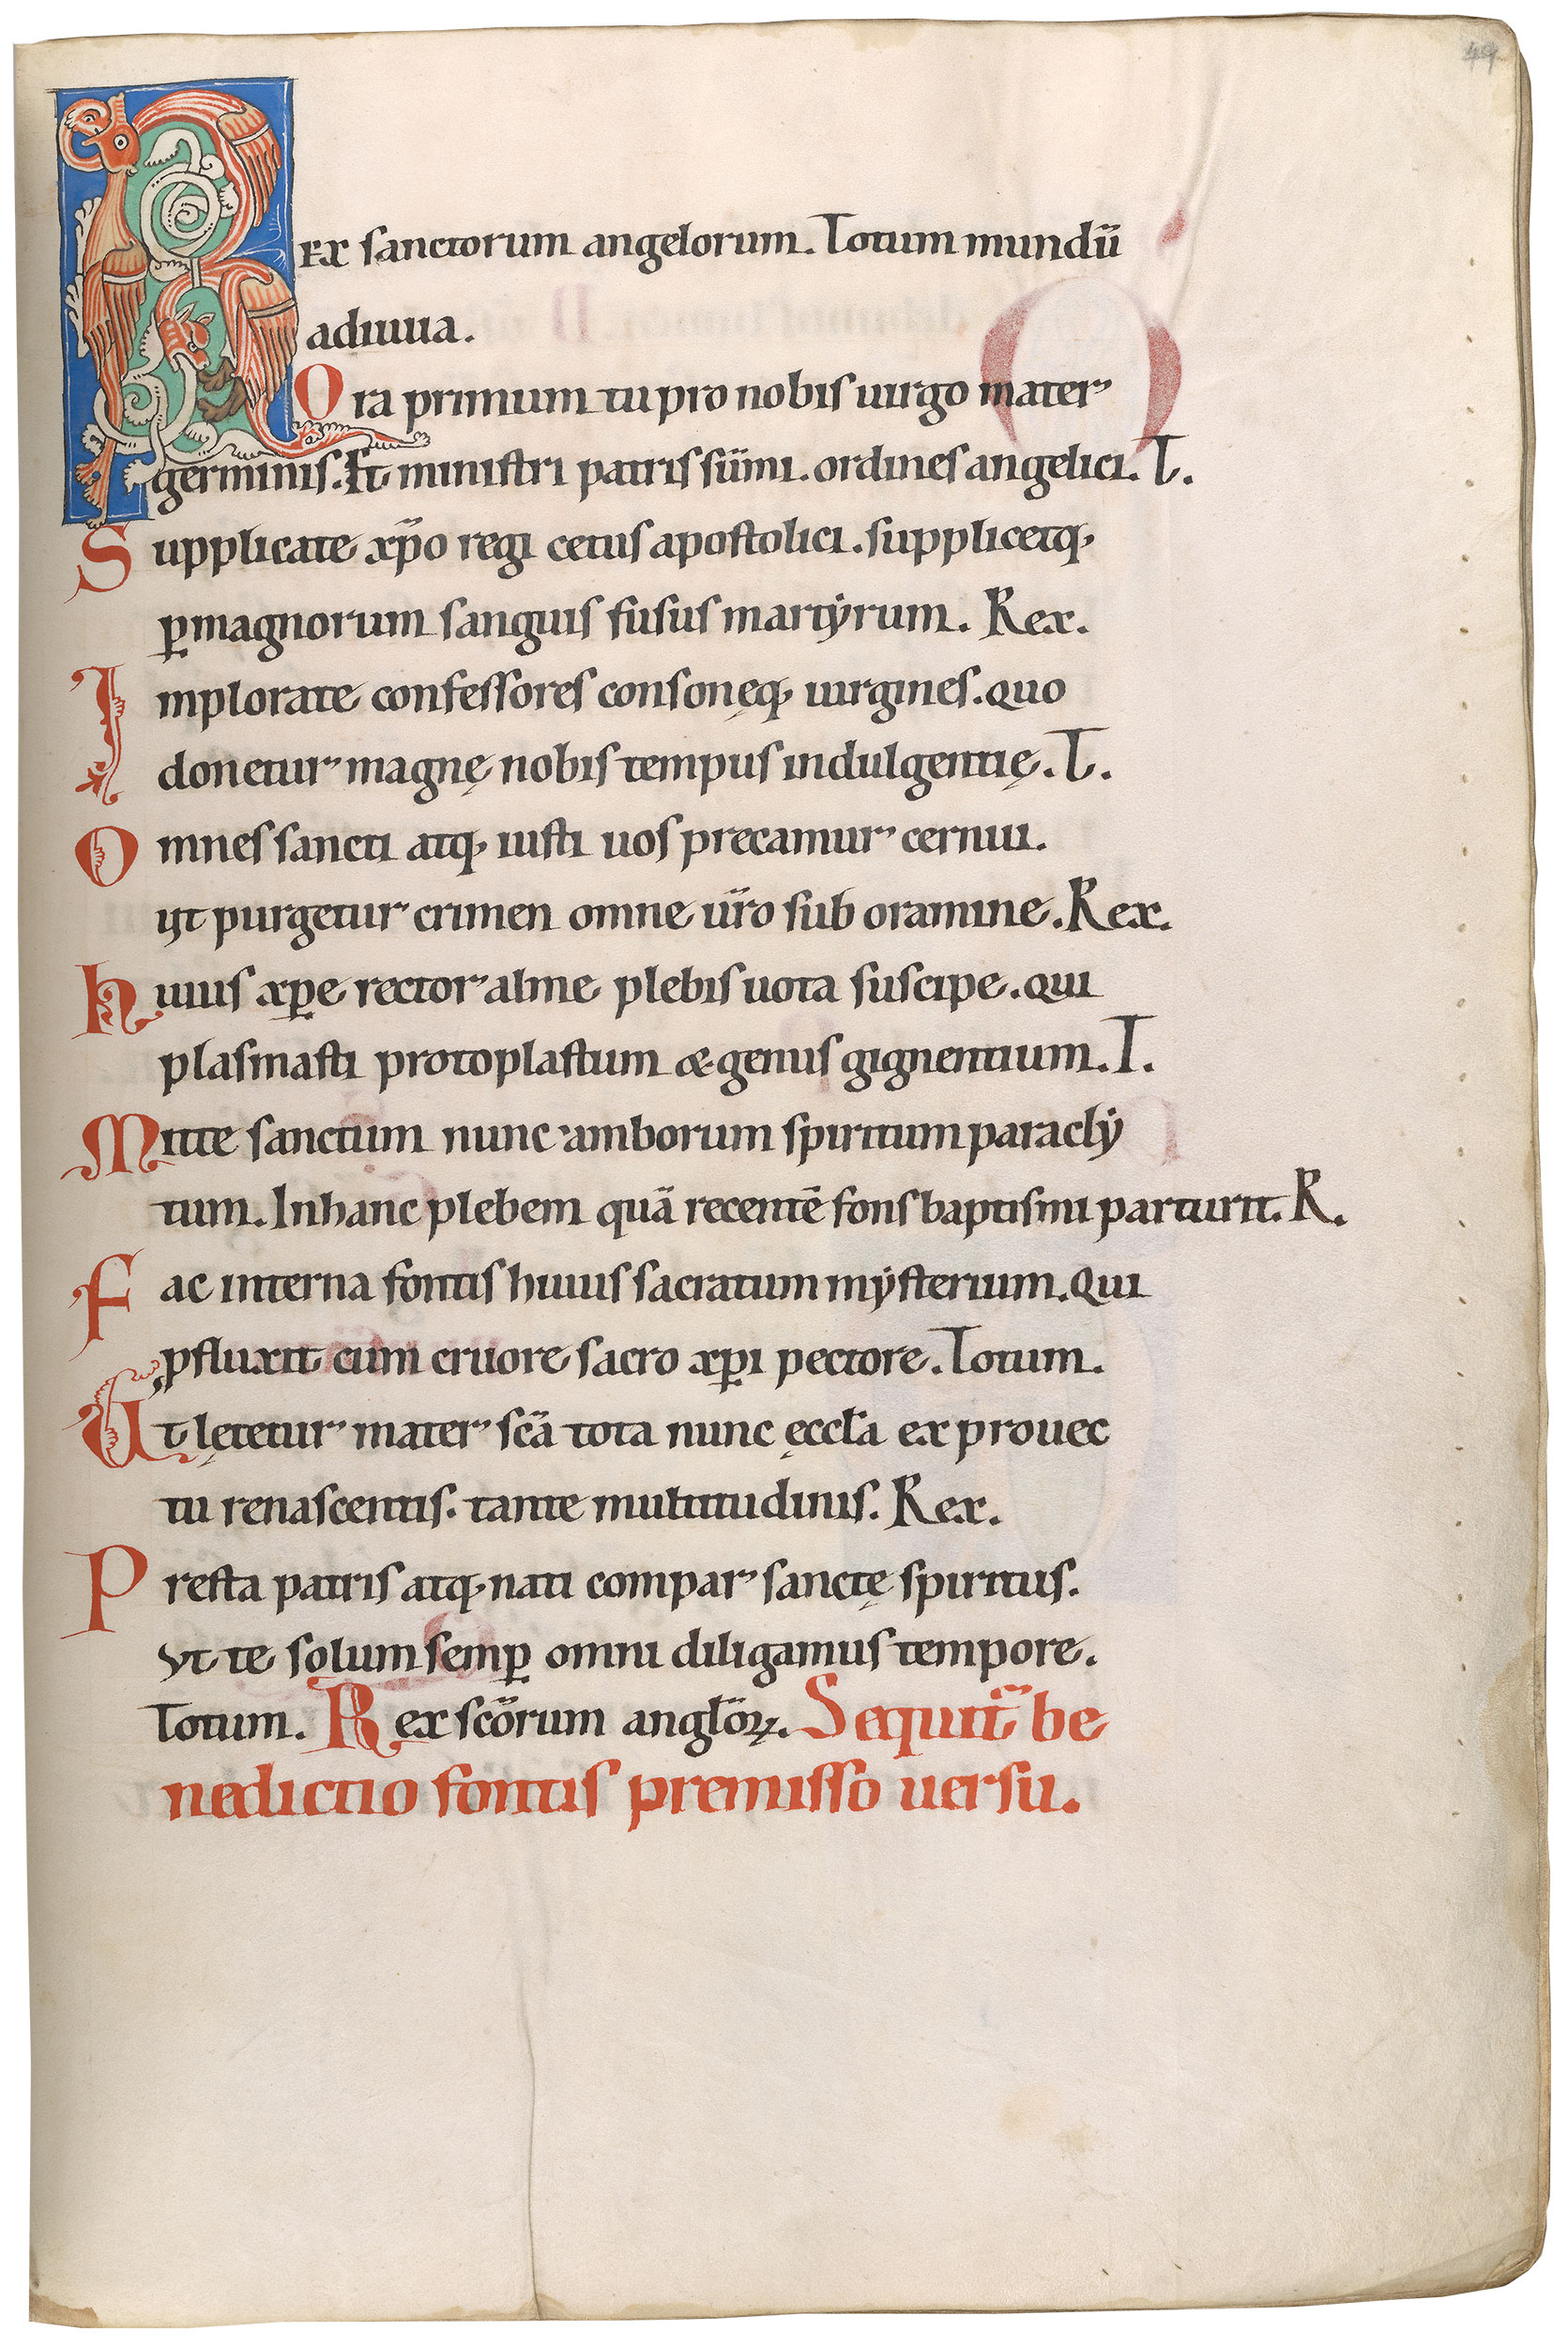 49
Rex sanctorum angelorum. Totum mundū
adiuua.
Ora primum tu pro nobis uirgo mater
germinis. Et ministri patris sūmi. ordines angelici. T.
Supplicate xp̄o regi cetus apostolici. supplicetq;
ꝑmagnorum sanguis fusus martẏrum. Rex.
Implorate confessores consonęq; uirgines. quo
donetur magnę nobis tempus indulgentię. T.
Omnes sancti atq; iusti uos precamur cernui.
ut purgetur crimen omne ūro sub oramine. Rex.
huius xp̄e rector alme plebis uota suscipe. qui
plasmasti protoplastum & genus gignentium. T.
Mitte sanctum nunc amborum spiritum paraclẏ
tum. In hanc plebem quā recentē fons baptismi parturit. R.
Fac interna fontis huius sacratum mẏsterium. Qui
ꝓfluxit cum cruore sacro xp̄i pectore. Totum.
Ut lętetur mater scā tota nunc ęccl̄a ex prouec
tu renascentis. tante multitudinis. Rex.
Presta patris atq; nati compar sanctę spiritus.
ut te solum semꝑ omni diligamus tempore.
Totum. Rex scōrum angl̄oꝝ. Sequit̄ be
nedictio fontis premisso uersu.